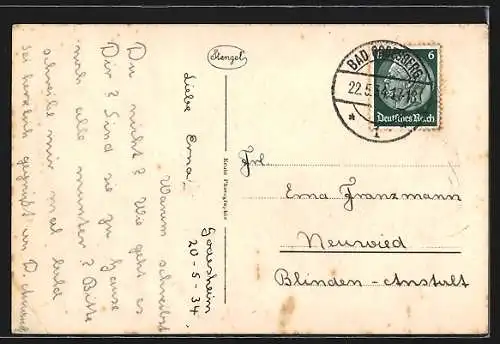 Stengel
Liebe Erna,
Godesheim
20-5-34.
Warum schreibst
Du nicht? Wie geht es
Dir? Sind sie zu Hause
noch alle munter? Bitte
schreibe mir mal bald
sei herzlich gegrüßt
BAD GODESBERG
22.5.34
1
6
Deutsches Reich
Frl.
Erna Franzmann
Neuwied
Blinden-Anstalt